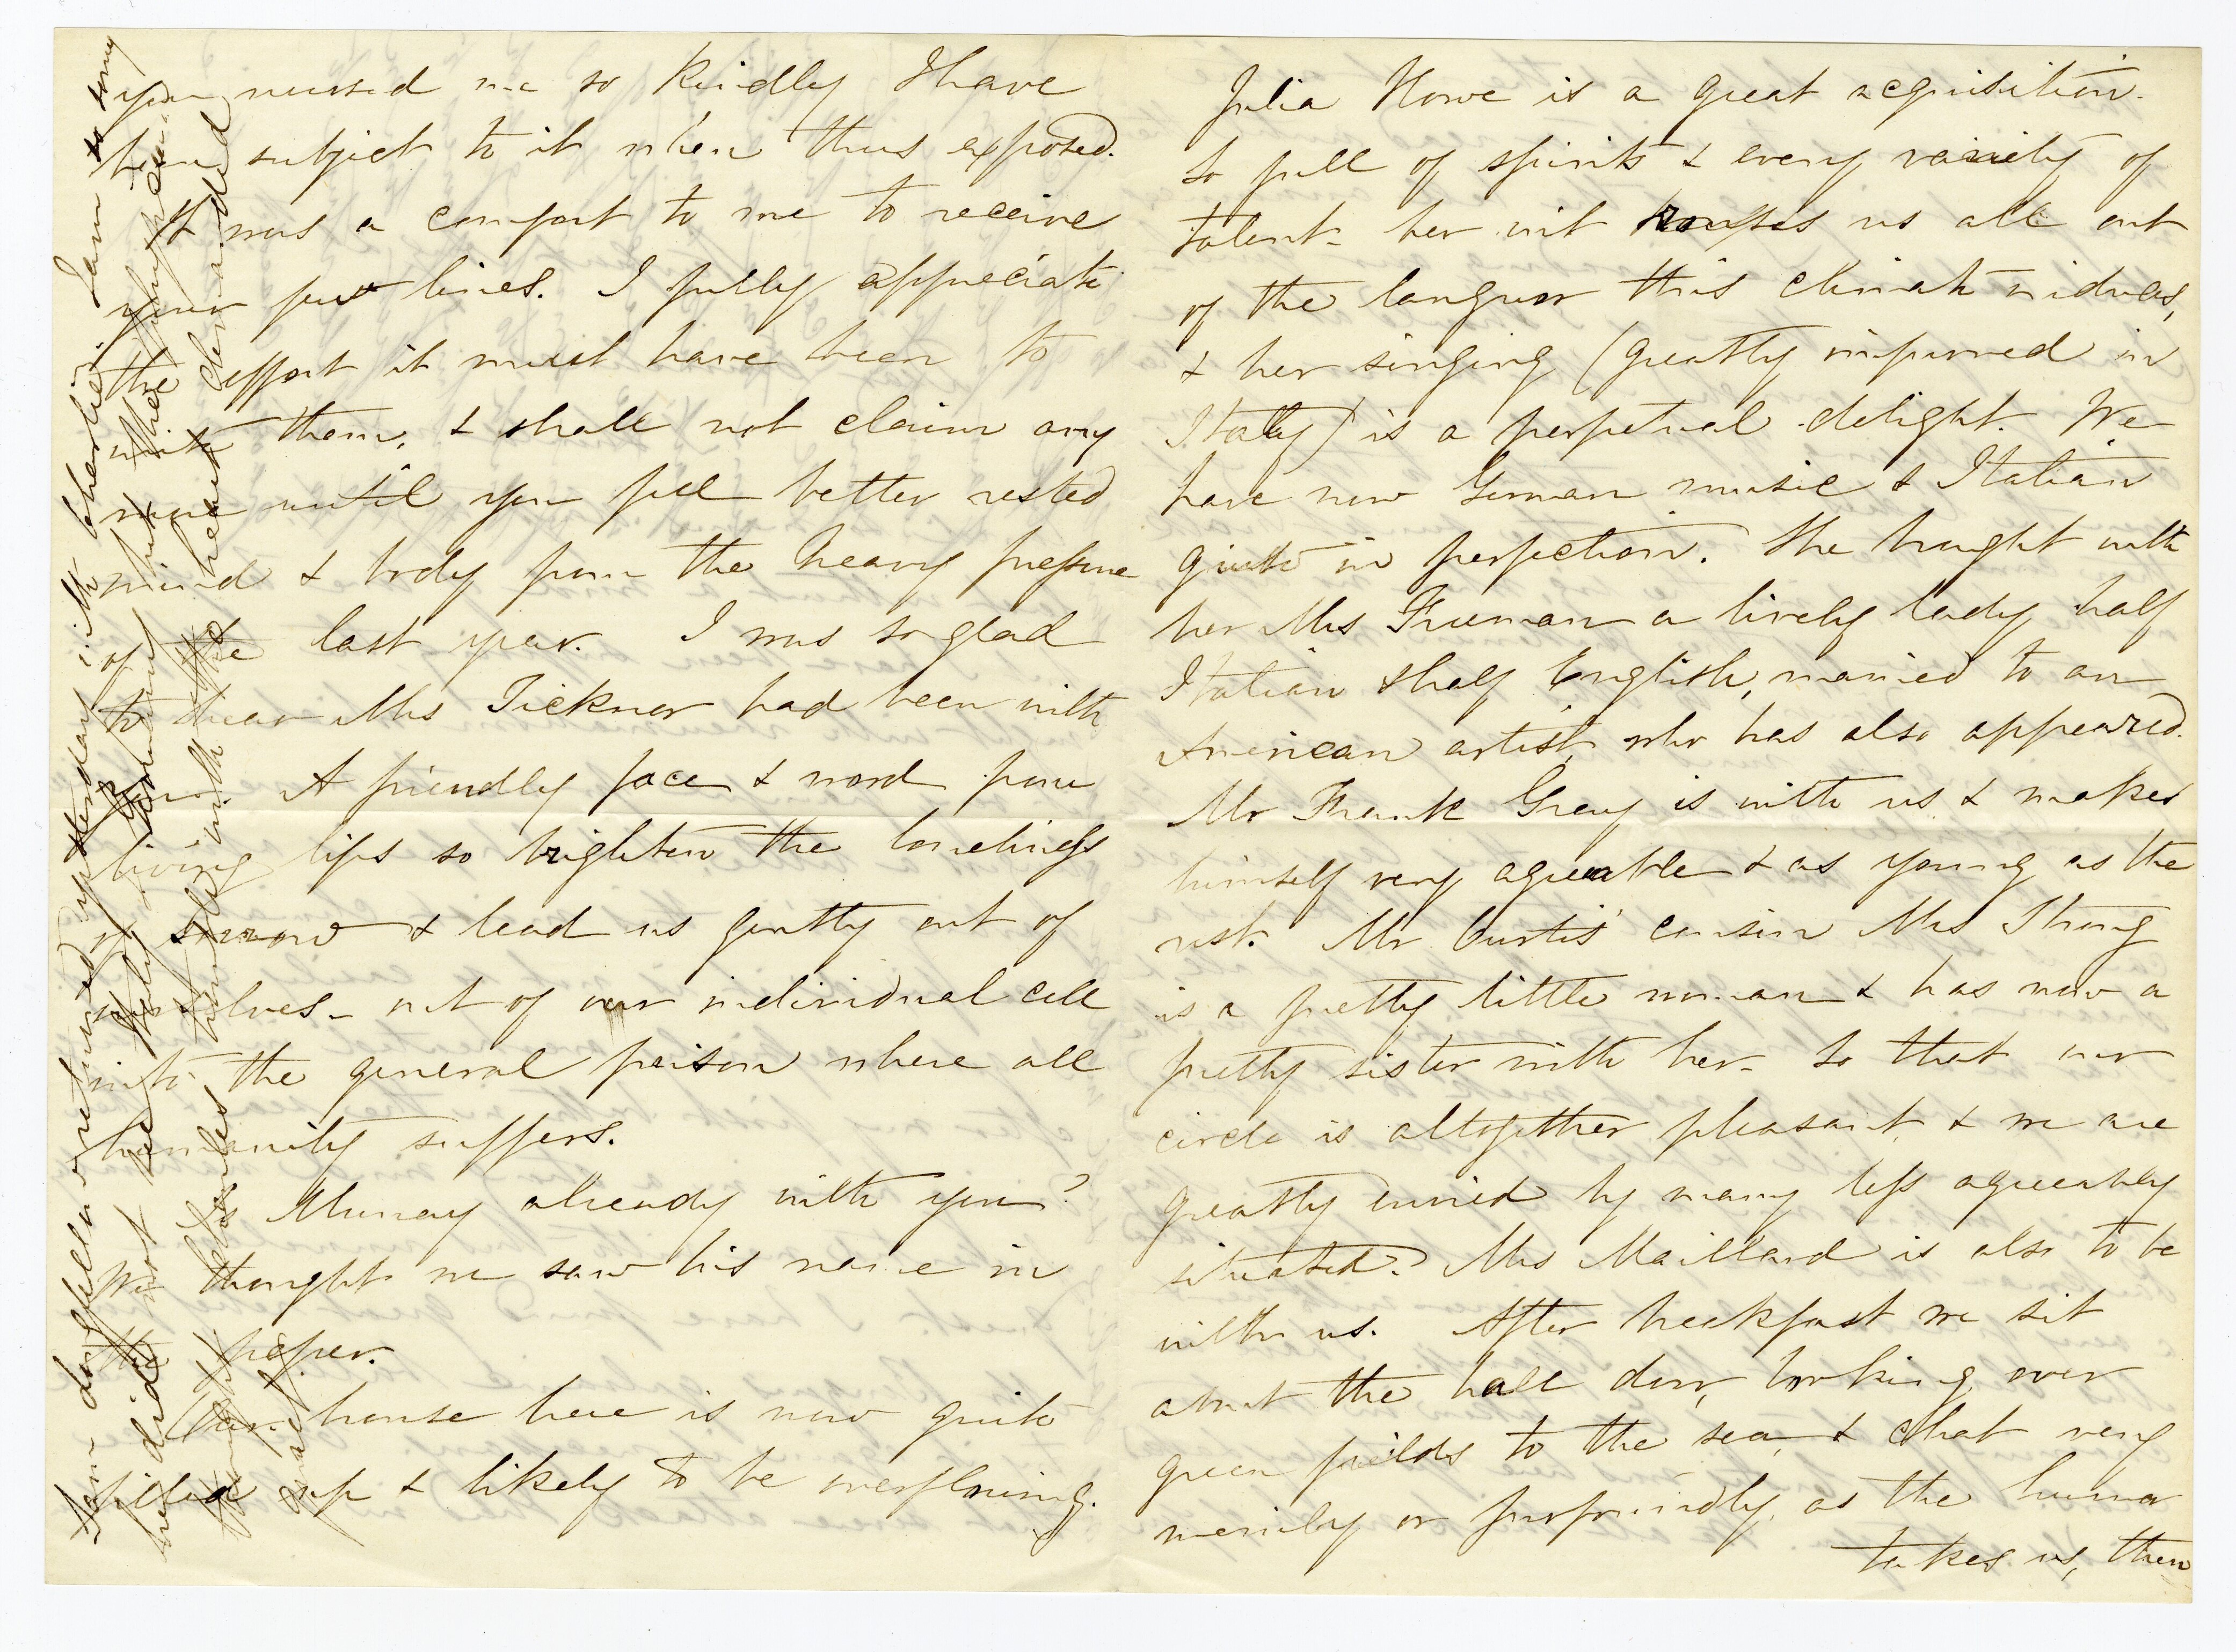 you nursed me so kindly I have
been subject to it when thus exposed.
It was a comfort to me to receive
your few lines. I fully appreciate
the effort it must have been to
write them, & shall not claim any
more until you feel better rested
mind & body from the heavy pressure
of the last year. I was so glad
to hear Mrs Ticknor had been with
you. A friendly face & word from
living lips so brighten the loneliness
of sorrow & lead us gently out of
ourselves - out of our individual cell
into the general prison where all
humanity suffers.
Is Murray already with you?
We thought we saw his name in
the paper.
Our house here is now quite
filled up & likely to be overflowing.
Julia Howe is a great acquisition.
So full of spirits & every variety of
talent - her wit rouses us all out
of the languor this climate induces,
& her singing (greatly improved in
Italy) is a perpetual delight. We
have now German music & Italian
quite in perfection. She brought with
her Mrs Freeman a lively lady half
Italian & half English, married to an
American artist, who has also appeared.
Mr Frank Gray is with us & makes
himself very agreeable & as young as the
rest. Mr Curtis' cousin Mrs Strong
is a pretty little woman & has now a
pretty sister with her - So that our
circle is altogether pleasant, & we are
greatly envied by many less agreeably
situated. Mrs Maillard is also to be
with us. After breakfast we sit
about the hall door, looking over
green fields to the sea, & chat very
merrily or profoundly, as the humor
takes us, then
Tom doffella returned yesterday with Charlie. I am so sorry
he did not see